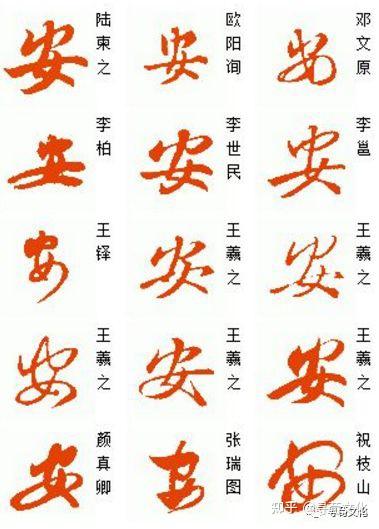 安 陆柬之 安 欧阳询 安 邓文原
安 李柏 安 李世民 安 李邕
安 王铎 安 王羲之 安 王羲之
安 王羲之 安 王羲之 安 王羲之
安 颜真卿 安 张瑞图 安 祝枝山
知乎 @寻奇文化
寻奇文化